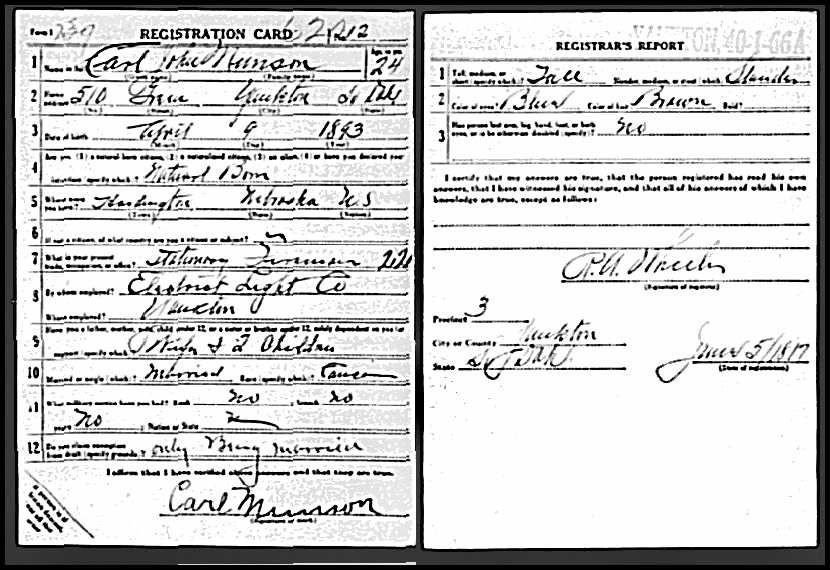 Form 1 REGISTRATION CARD
1 Name in full Carl John Munson Age, in yrs. 24
(Given name) (Family name)
2 Home address 510 Green Yankton So Dak
(No.) (Street) (City) (State)
3 Date of birth April 9 1893
(Month) (Day) (Year)
Are you (1) a natural-born citizen, (2) a naturalized citizen, (3) an alien, (4) or have you declared your
4 intention (specify which)? Natural Born
5 Where were you born? Hardington Nebraska U S
(Town) (State) (Nation)
6 If not a citizen, of what country are you a citizen or subject?
7 What is your present trade, occupation, or office? Stationary Fireman
8 By whom employed? Electrict Light Co
Where employed? Yankton
Have you a father, mother, wife, child under 12, or a sister or brother under 12, solely dependent on you for
9 support (specify which)? Wife & 2 Children
10 Married or single (which)? Married Race (specify which)?
11 What military service have you had? Rank No ; branch No
years No ; Nation or State
12 Do you claim exemption from draft (specify grounds)? only Being married
I affirm that I have verified above answers and that they are true.
Carl Munson
(Signature or mark)
YANKTON, 40-1-66A
REGISTRAR'S REPORT
1 Tall, medium, or short (specify which)? Tall Slender, medium, or stout (which)? Slender
2 Color of eyes? Blue Color of hair? Brown Bald?
3 Has person lost arm, leg, hand, foot, or both eyes, or is he otherwise disabled (specify)? No
I certify that my answers are true, that the person registered has read his own
answers, that I have witnessed his signature, and that all of his answers of which I have
knowledge are true, except as follows:
(Signature of registrar)
Precinct 3
City or County Yankton
State So Dak. June 5/1917
(Date of registration)